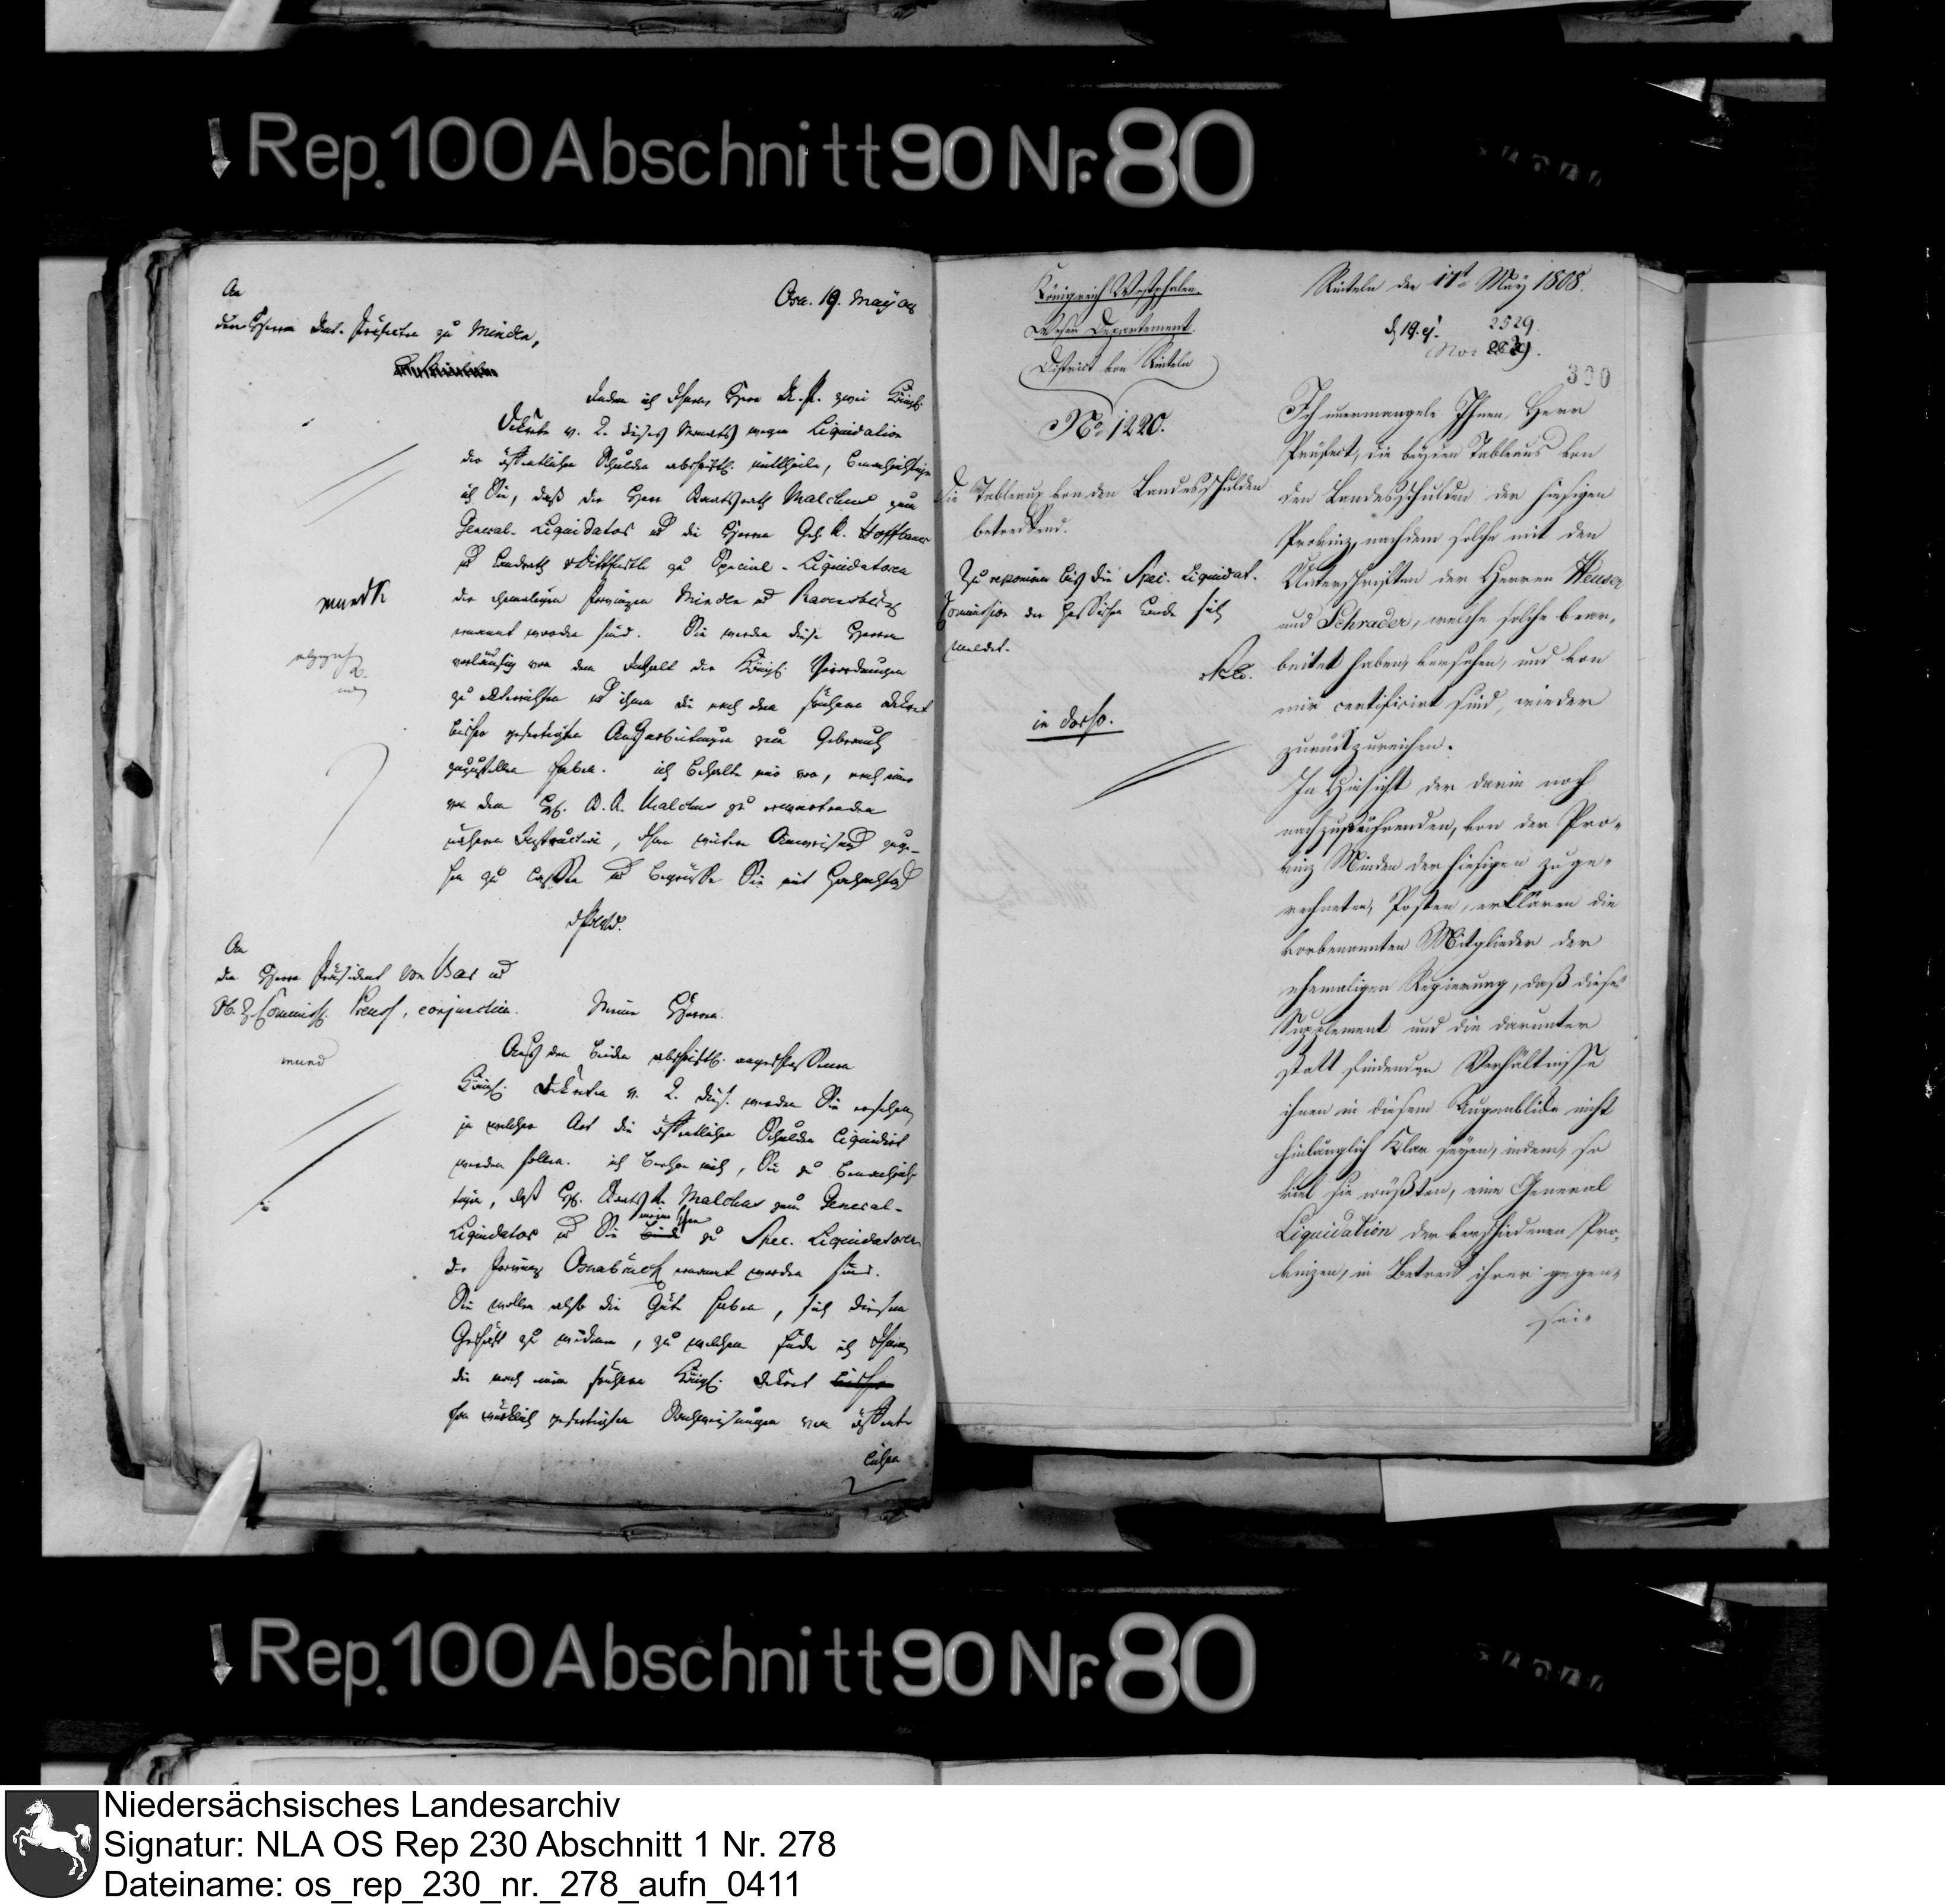 Rep. 100 Abschnitt 90 Nr. 80
An
den Herrn Unt. Präfecten zu Minden,
Osn. 19. May 08
Indem ich Ihnen, Herr U. P. zwei Königl.
Dekrete v. 2. dieses Monats wegen Liquidation
der öffentlichen Schulden abschriftl. mittheile, benachrichtige
ich Sie, daß der Herr Staatsrath Malchus zum
General-Liquidator und die Herrn Geh. R. Hoffbauer
und Landrath v Dittfurth zu Special-Liquidatoren
der ehemaligen Provinzen Minden und Ravensberg
ernannt worden sind. Sie werden diese Herren
vorläufig von dem Inhalt der Königl. Verordnungen
zu unterrichten und ihnen die nach dem früheren Dekret
bisher gefertigten Ausarbeitungen zum Gebrauch
zuzustellen haben. ich behalte mir vor, nach einer
von dem H. St. R. Malchus zu erwartenden
näheren Instruction, Ihnen weitere Anweisung zuge-
hen zu lassen und begrüße Sie mit Hochachtung
mundt
An
den Herrn Präsident von Bar und
conjunctim.
Meine Herren.
mund
Aus den beiden abschriftl. angeschlossenen
Königl. Dekreten v. 2. dies. werden Sie ersehen,
in welcher Art die öffentlichen Schulden liquidirt
werden sollen. ich beehre mich, Sie zu benachrich-
tigen, daß H. Staats R. Malchus zum General-
Liquidator und Sie meine Herren zu Spec. Liquidatoren
der Provinz Osnabrück ernannt worden sind.
Sie wollen also die Güte haben, sich diesem
Geschäft zu widmen, zu welchem Ende ich Ihnen
die nach einem früheren Königl. Dekret
gefertigten Nachweisungen von öffent-
lichen
Königreich Westphalen.
Weser Departement.
District von Rinteln
No. 1220.
Die Tableaux von den Landesschulden
betreffend.
Zu reponiren bis die Spec. Liquidat.
Commission der Hessischen Lande sich
meldet.
in dorso.
Rinteln den 17t May 1808.
d 19. ej.
2529
300
Ich unermangele Ihnen, Herr
Präfect, die beyden Tableaus von
den Landesschulden der hiesigen
Provinz, nachdem solche mit den
Unterschriften der Herren Heuser
und Schrader, welche solche bear-
beitet haben, versehen, und von
mir certificirt sind, wieder
zurückzureichen.
In Hinsicht der darin noch
nachzuführenden, von der Pro-
vinz Minden der hiesigen zuge-
rechneten Posten, erklären die
vorbenannten Mitglieder der
ehemaligen Regierung, daß dieses
Supplement und die darunter
statt findenden Verhältnisse
ihnen in diesem Augenblicke nicht
hinlänglich klar seyen, indem, so
viel sie wüßten, eine General
Liquidation der verschiedenen Pro-
vinzen, in Betreff ihrer gegen-
sei-
Rep. 100 Abschnitt 90 Nr. 80
Niedersächsisches Landesarchiv
Signatur: NLA OS Rep 230 Abschnitt 1 Nr. 278
Dateiname: os_rep_230_nr._278_aufn_0411